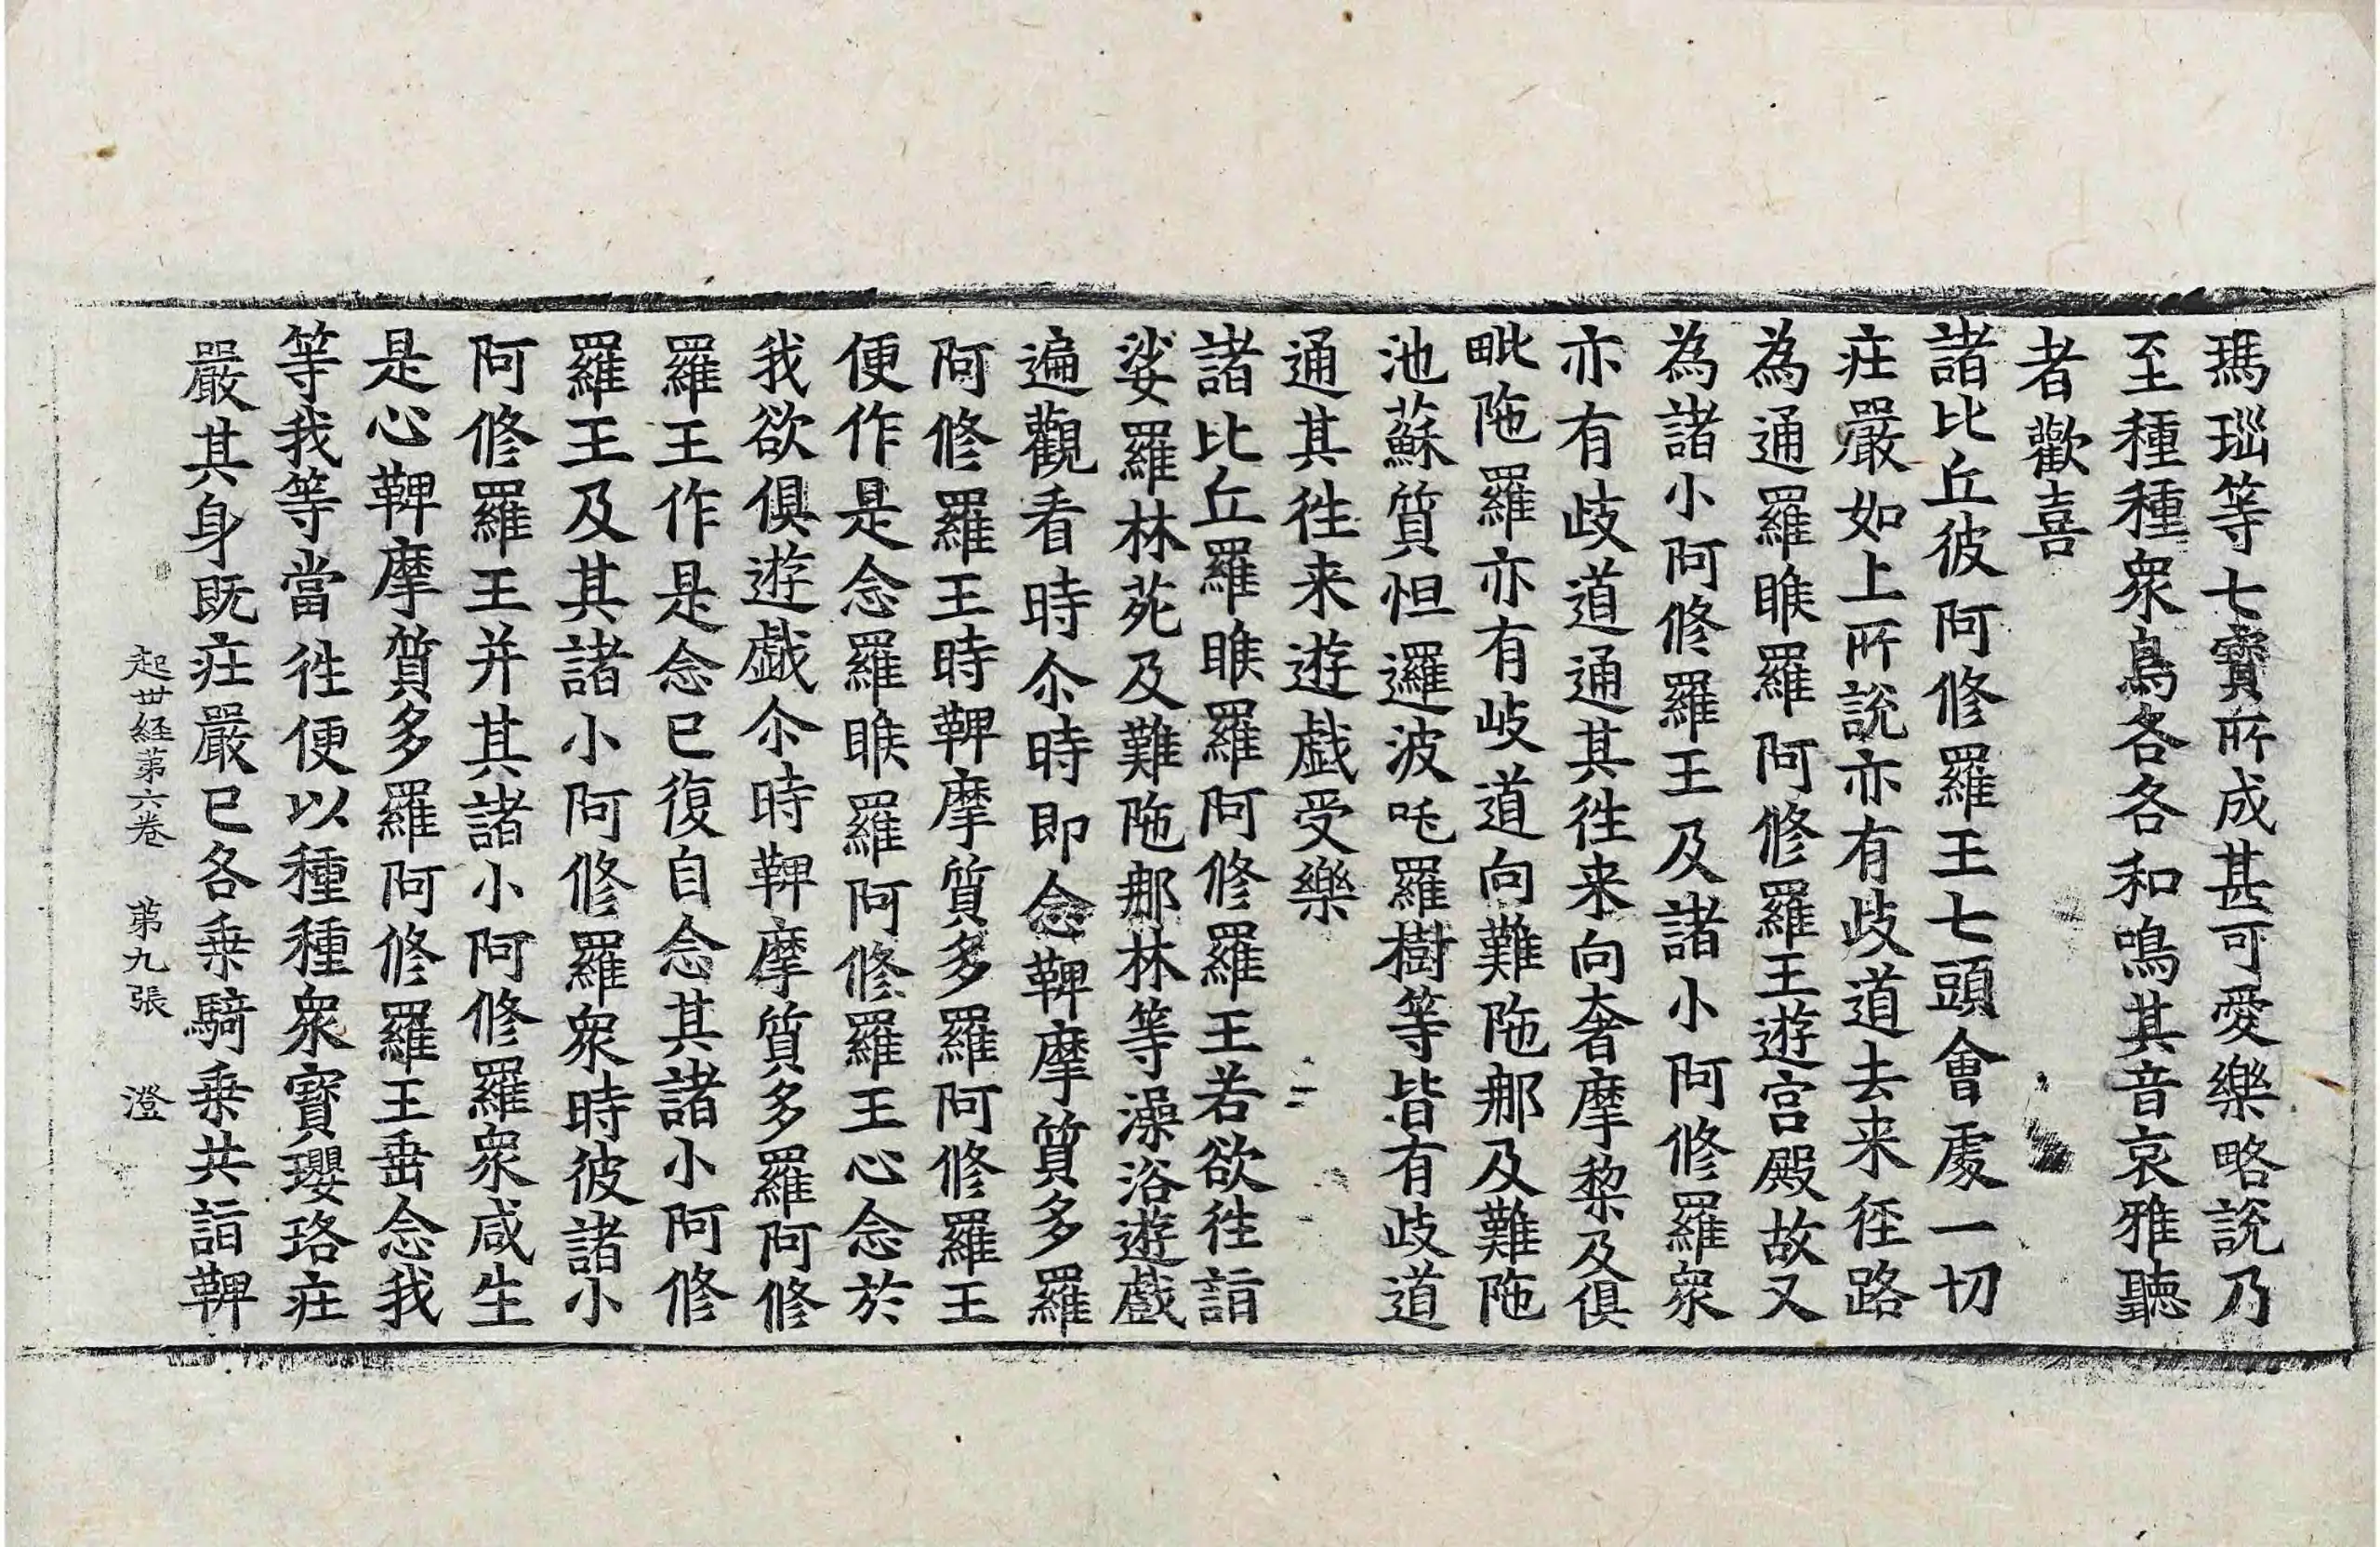 瑪瑙等七寶所成甚可愛樂略說乃
至種種衆鳥各各和鳴其音哀雅聽
者歡喜
諸比丘彼阿修羅王七頭會處一切
莊嚴如上所說亦有歧道去来徑路
為通羅睺羅阿修羅王遊宮殿故又
為諸小阿修羅王及諸小阿修羅衆
亦有歧道通其徃来向奢摩黎及俱
毗陁羅亦有岐道向難陁那及難陁
池蘇質怛邏波吒羅樹等皆有歧道
通其徃来遊戯受樂
諸比丘羅睺羅阿修羅王若欲徃詣
娑羅林苑及難陁那林等澡浴遊戲
遍觀看時尒時即念鞞摩質多羅
阿修羅王時鞞摩質多羅阿修羅王
便作是念羅睺羅阿修羅王心念於
我欲俱遊戯尒時鞞摩質多羅阿修
羅王作是念已復自念其諸小阿修
羅王及其諸小阿修羅衆時彼諸小
阿修羅王并其諸小阿修羅衆咸生
是心鞞摩質多羅阿修羅王垂念我
等我等當徃便以種種衆寶瓔珞莊
嚴其身既莊嚴已各乗騎乗共詣鞞
起世経第六卷 第九張 澄